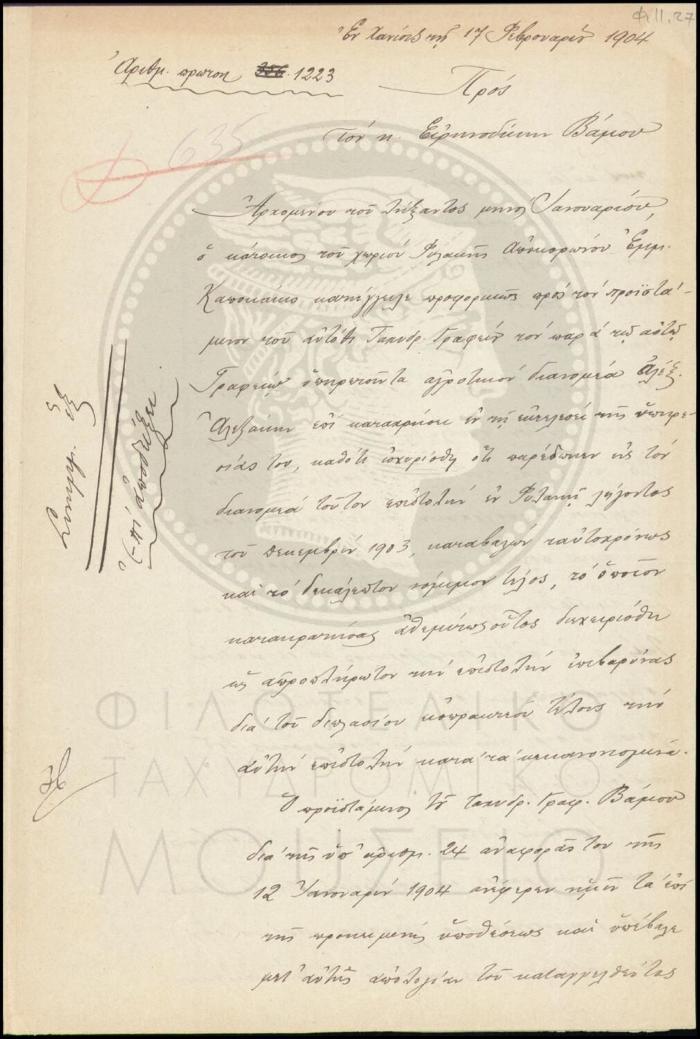 Φ.11.27
Ἐν Χανίοις τῇ 17 Φεβρουαρίου 1904
Ἀριθμ. πρωτοκ. 1223
Πρὸς
Τὸν κ. Εἰρηνοδίκην Βάμου
635
Ἀρχομένου τοῦ λήξαντος μηνὸς Ἰανουαρίου,
ὁ κάτοικος τοῦ χωριοῦ Φυλακῆς Ἀποκορώνου Ἐμμ.
κατήγγειλε προφορικῶς πρὸς τὸν προϊστά-
μενον τοῦ αὐτόθι Ταχυδρ. Γραφείου τὸν παρὰ τῷ αὐτῷ
Γραφείῳ ὑπηρετοῦντα ἀγροτικὸν διανομέα Ἀλέξ.
Ἀλεξάκην ἐπὶ καταχρήσει ἐν τῇ ἐκτελέσει τῆς ὑπηρε-
σίας του, καθότι ἰσχυρίσθη ὅτι παρέδωκεν εἰς τὸν
διανομέα τοῦτον ἐπιστολὴν ἐν Φυλακῇ λήγοντος
τοῦ Δεκεμβρίου 1903, καταβαλὼν ταὐτοχρόνως
καὶ τὸ δεκάλεπτον νόμιμον τέλος, τὸ ὁποῖον
κατακρατήσας ἀθεμίτως οὗτος διεχειρίσθη
ὡς ἀπροπλήρωτον τὴν ἐπιστολὴν ἐπιβαρύνας
διὰ τοῦ διπλασίου εἰσπρακτέου τέλους τὴν
αὐτὴν ἐπιστολὴν κατὰ τὰ κεκανονισμένα.
Ὁ προϊστάμενος τοῦ ταχυδρ. Γραφ. Βάμου
διὰ τῆς ὑπ' ἀριθμ. 24 ἀναφορᾶς του τῆς
12 Ἰανουαρίου 1904 ἀνέφερεν ἡμῖν τὰ ἐπὶ
τῆς προκειμένης ὑποθέσεως καὶ ὑπέβαλε
μετ' αὐτῆς ἀπολογίαν τοῦ καταγγελθέντος
Ἐπὶ ἀποδείξει
ΦΙΛΟΤΕΛΙΚΟ
ΤΑΧΥΔΡΟΜΙΚΟ
ΜΟΥΣΕΙΟ